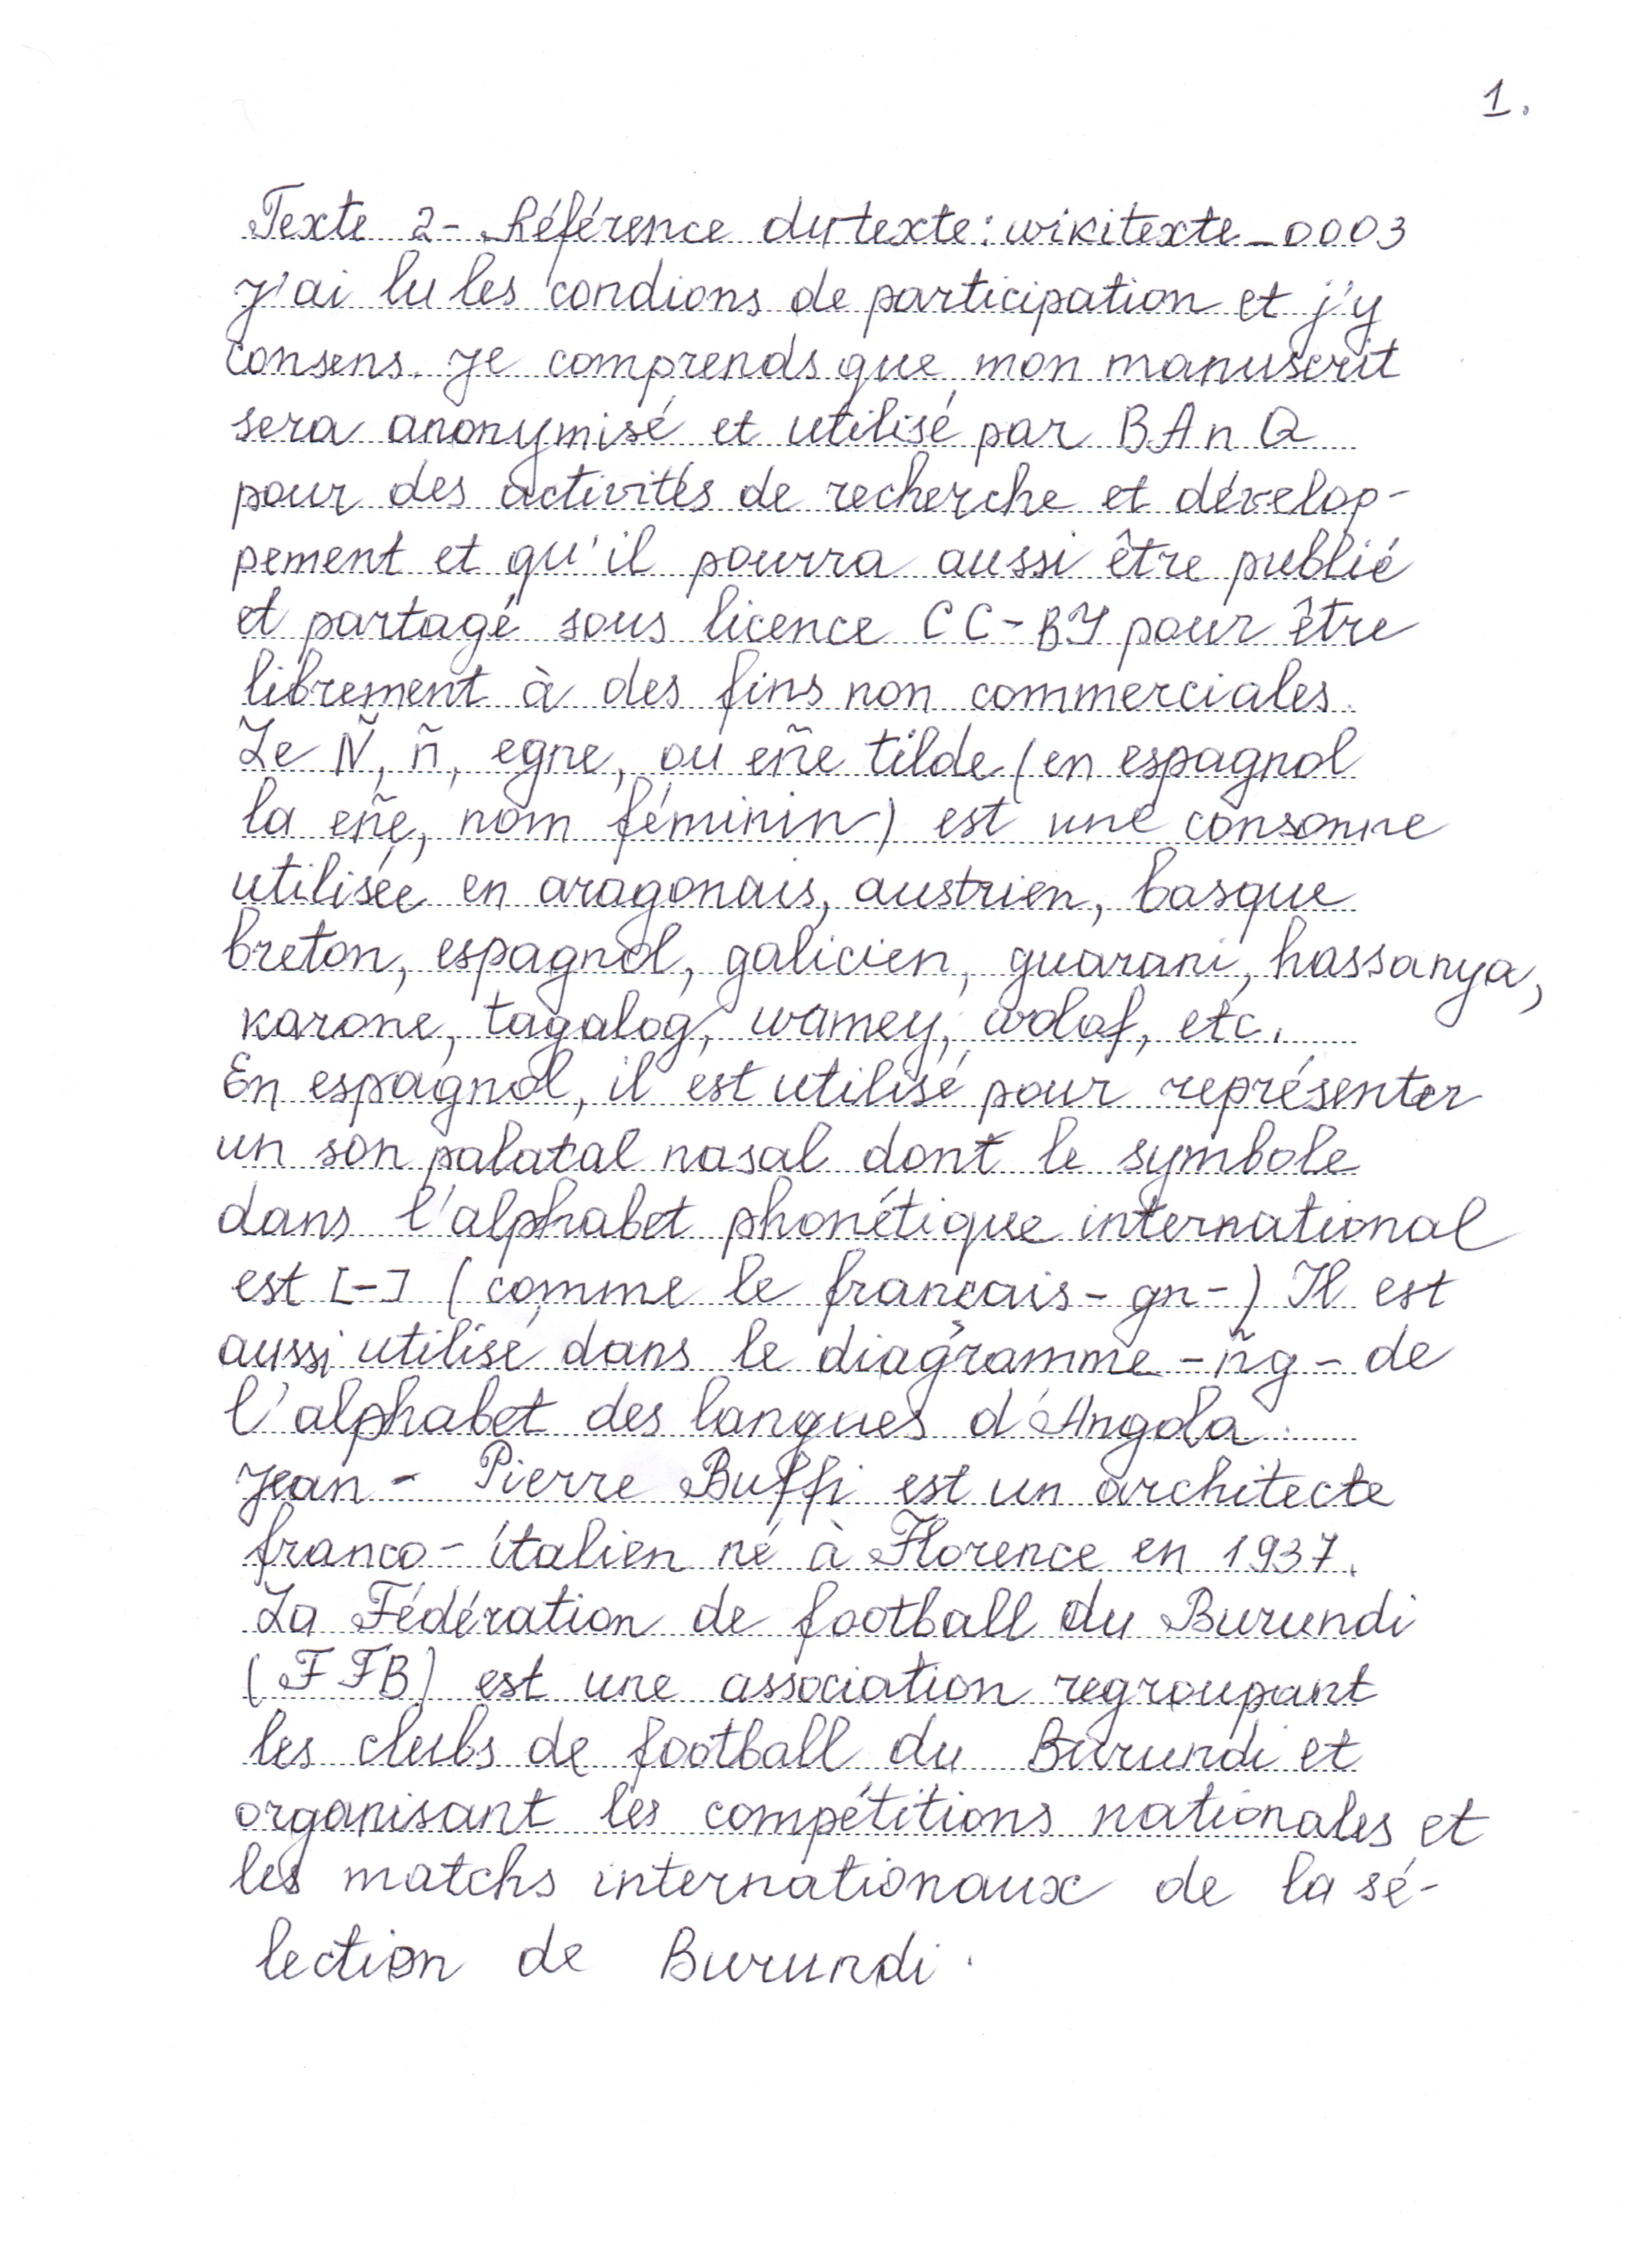 1.
Texte 2 - Référence du texte : wikitexte_0003
J'ai lu les condions de participation et j'y
consens. Je comprends que mon manuscrit
sera anonymisé et utilisé par BAnQ
pour des activités de recherche et dévelop-
pement et qu'il pourra aussi être publié
et partagé sous licence CC-BY pour être
librement à des fins non commerciales.
Le Ñ, ñ, egne, ou eñe tilde (en espagnol
la eñe, nom féminin) est une consonne
utilisée en aragonais, austrien, basque
breton, espagnol, galicien, guarani, hassanya,
karone, tagalog, wamey, wolof, etc.
En espagnol, il est utilisé pour représenter
un son palatal nasal dont le symbole
dans l'alphabet phonétique international
est [-] (comme le français - gn -) Il est
aussi utilisé dans le diagramme - ñg - de
l'alphabet des langues d'Angola.
Jean - Pierre Buffi est un architecte
franco - italien né à Florence en 1937.
La Fédération de football du Burundi
(FFB) est une association regroupant
les clubs de football du Burundi et
organisant les compétitions nationales et
les matchs internationaux de la sé-
lection de Burundi.